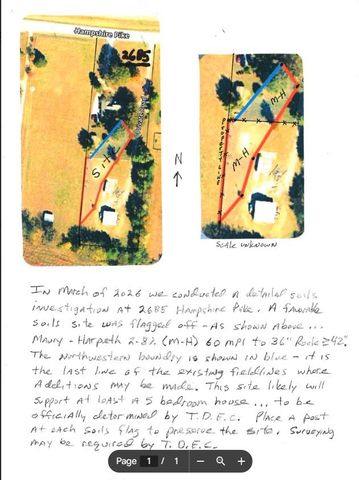 Hampshire Pike
2685
Site
N
M-H
M-H
Scale unknown
In March of 2026 we conducted a detailed soils
investigation at 2685 Hampshire Pike. A favorable
soils site was flagged off - as shown above...
Maury-Harpeth 2-8% (M-H) 60 MPI to 36" Rock ≥42".
The northwestern boundry is shown in blue - it is
the last line of the existing fieldlines where
Additions may be made. This site likely will
support at least a 5 bedroom house... to be
officially determined by T.D.E.C. Place a post
at each soils flag to preserve the site. Surveying
may be required by T.D.E.C.
Page 1 / 1